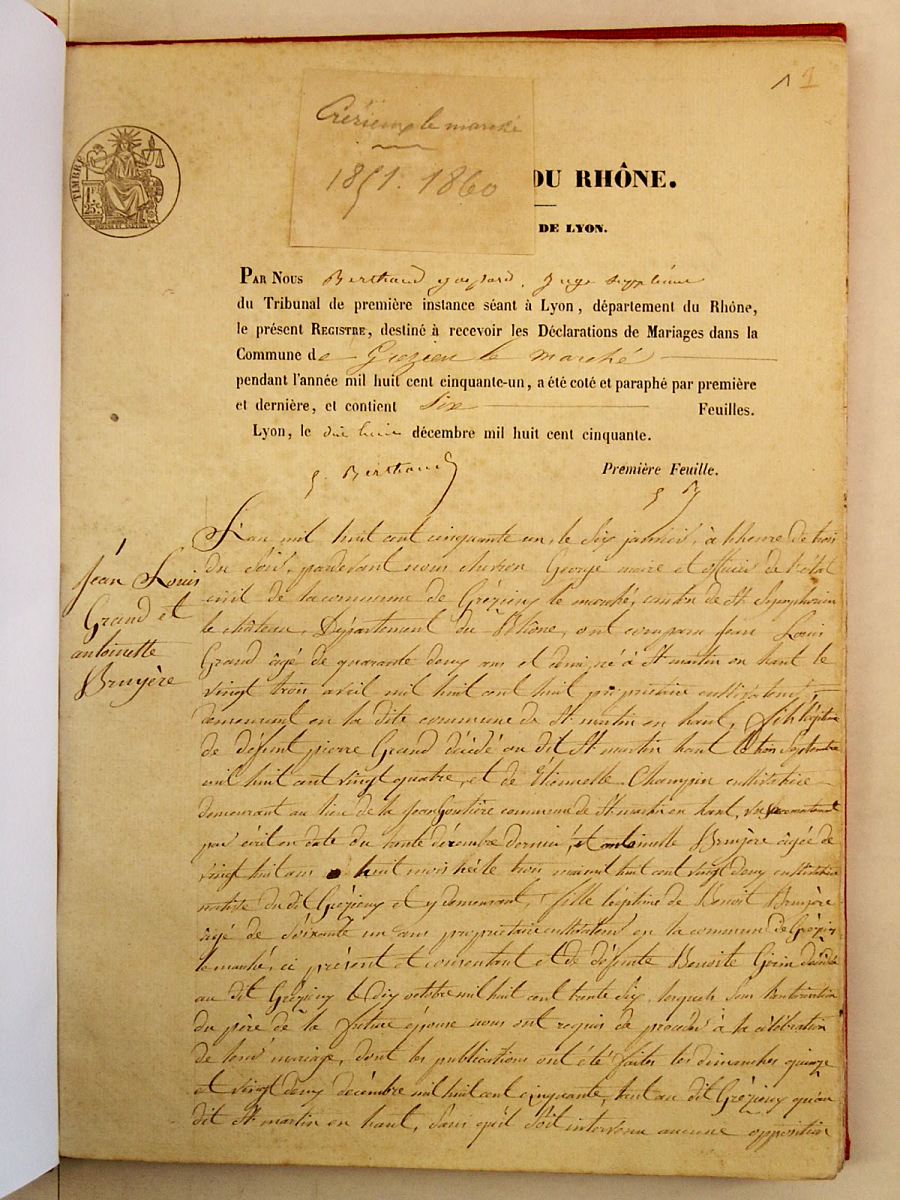 1
Grézieux le marché
1851. 1860
DU RHÔNE.
DE LYON.
TIMBRE
1 FR
25 C
PAR NOUS Berthaud gaspard, Juge suppléant
du Tribunal de première instance séant à Lyon, département du Rhône,
le présent REGISTRE, destiné à recevoir les Déclarations de Mariages dans la
Commune de Grézieu le marché
pendant l'année mil huit cent cinquante-un, a été coté et paraphé par première
et dernière, et contient Six Feuilles.
Lyon, le dix huit décembre mil huit cent cinquante.
G. Berthaud
Première Feuille.
G B
Jean Louis
Grand et
antoinette
Bruyère
L'an mil huit cent cinquante un, le Six janvier, à l'heure de trois
du Soir, pardevant nous chevron George maire et officier de l'état
civil de la commune de Grézieux le marché, canton de St Symphorien
le château, Département du Rhône, ont comparu Jean Louis
Grand âgé de quarante deux ans et demi, né à St martin en haut le
vingt trois avril mil huit cent huit, propriétaire cultivateur,
demeurant en la dite commune de St martin en haut, fils légitime
de défunt pierre Grand décédé au dit St martin haut le trois Septembre
mil huit cent vingt quatre, et de Étiennette Champin cultivatrice
demeurant au lieu de la commune de St martin en haut,
par écrit en date du trente décembre dernier, et antoinette Bruyère âgée de
vingt huit ans huit mois née le trois mil huit cent vingt deux cultivatrice
native du dit Grézieux et y demeurant, fille légitime de Benoit Bruyère
âgé de Soixante un ans propriétaire cultivateur en la commune de Grézieux
le marché, ci présent et consentant et de défunte Benoite Girin décédée
au dit Grézieux le dix octobre mil huit cent trente Six, lesquels Sous l'autorisation
du père de la future épouse nous ont requis de procéder à la célébration
de leur mariage, dont les publications ont été faites les dimanches quinze
et vingt deux décembre mil huit cent cinquante, tant au dit Grézieux qu'au
dit St martin en haut, Sans qu'il Soit intervenu aucune opposition